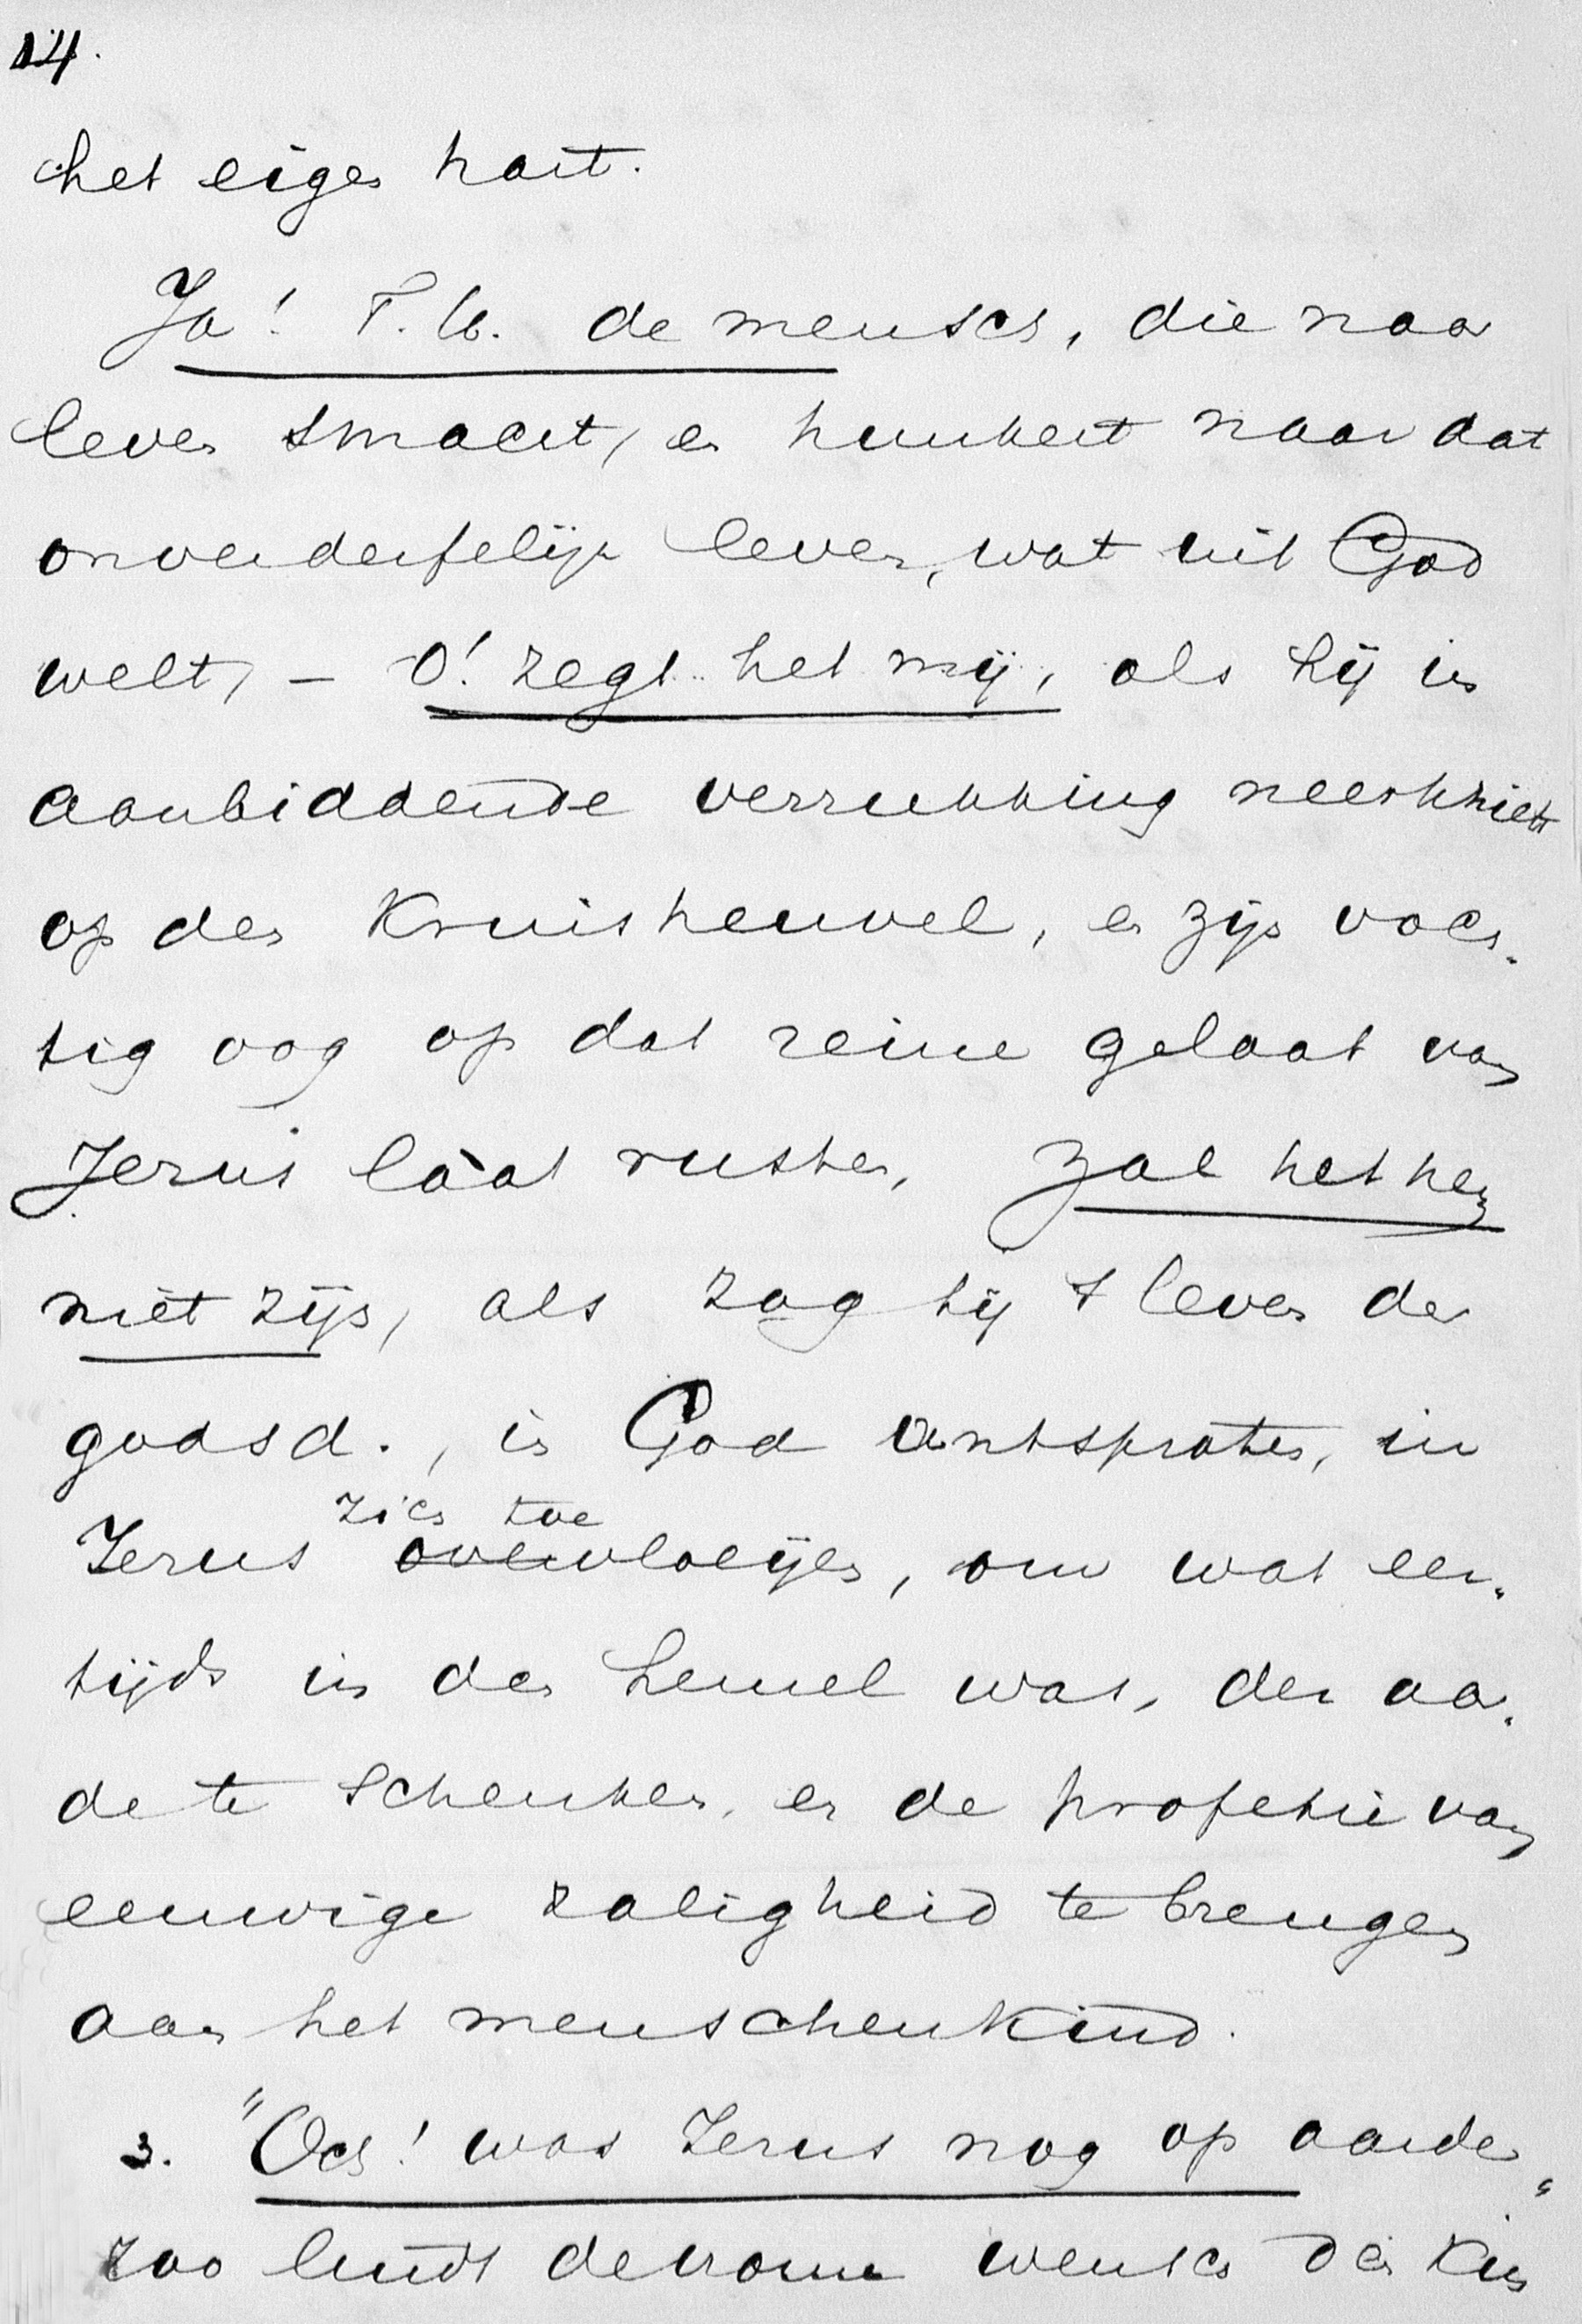 14.
het eigen hart.
Ja! T. H. de mensch, die naar
leven smacht, en hunkert naar dat
onverderfelijk leven, wat uit God
welt, – O! zegt het mij, als hij in
aanbiddende verrukking neerknielt
op den Kruisheuvel, en zijn voch-
tig oog op dat reine gelaat van
Jezus láát rusten, zal het hem
niet zijn, als zag hij 't leven der
godsd., in God ontsproten, in
Jezus zich toe overvloeijen, om wat eer-
tijds in den hemel was, der aar-
de te schenken, en de profetie van
eeuwige zaligheid te brengen
aan het menschenkind.
3. "Och! was Jezus nog op aarde"
zoo luidt de vrome wensch der kin